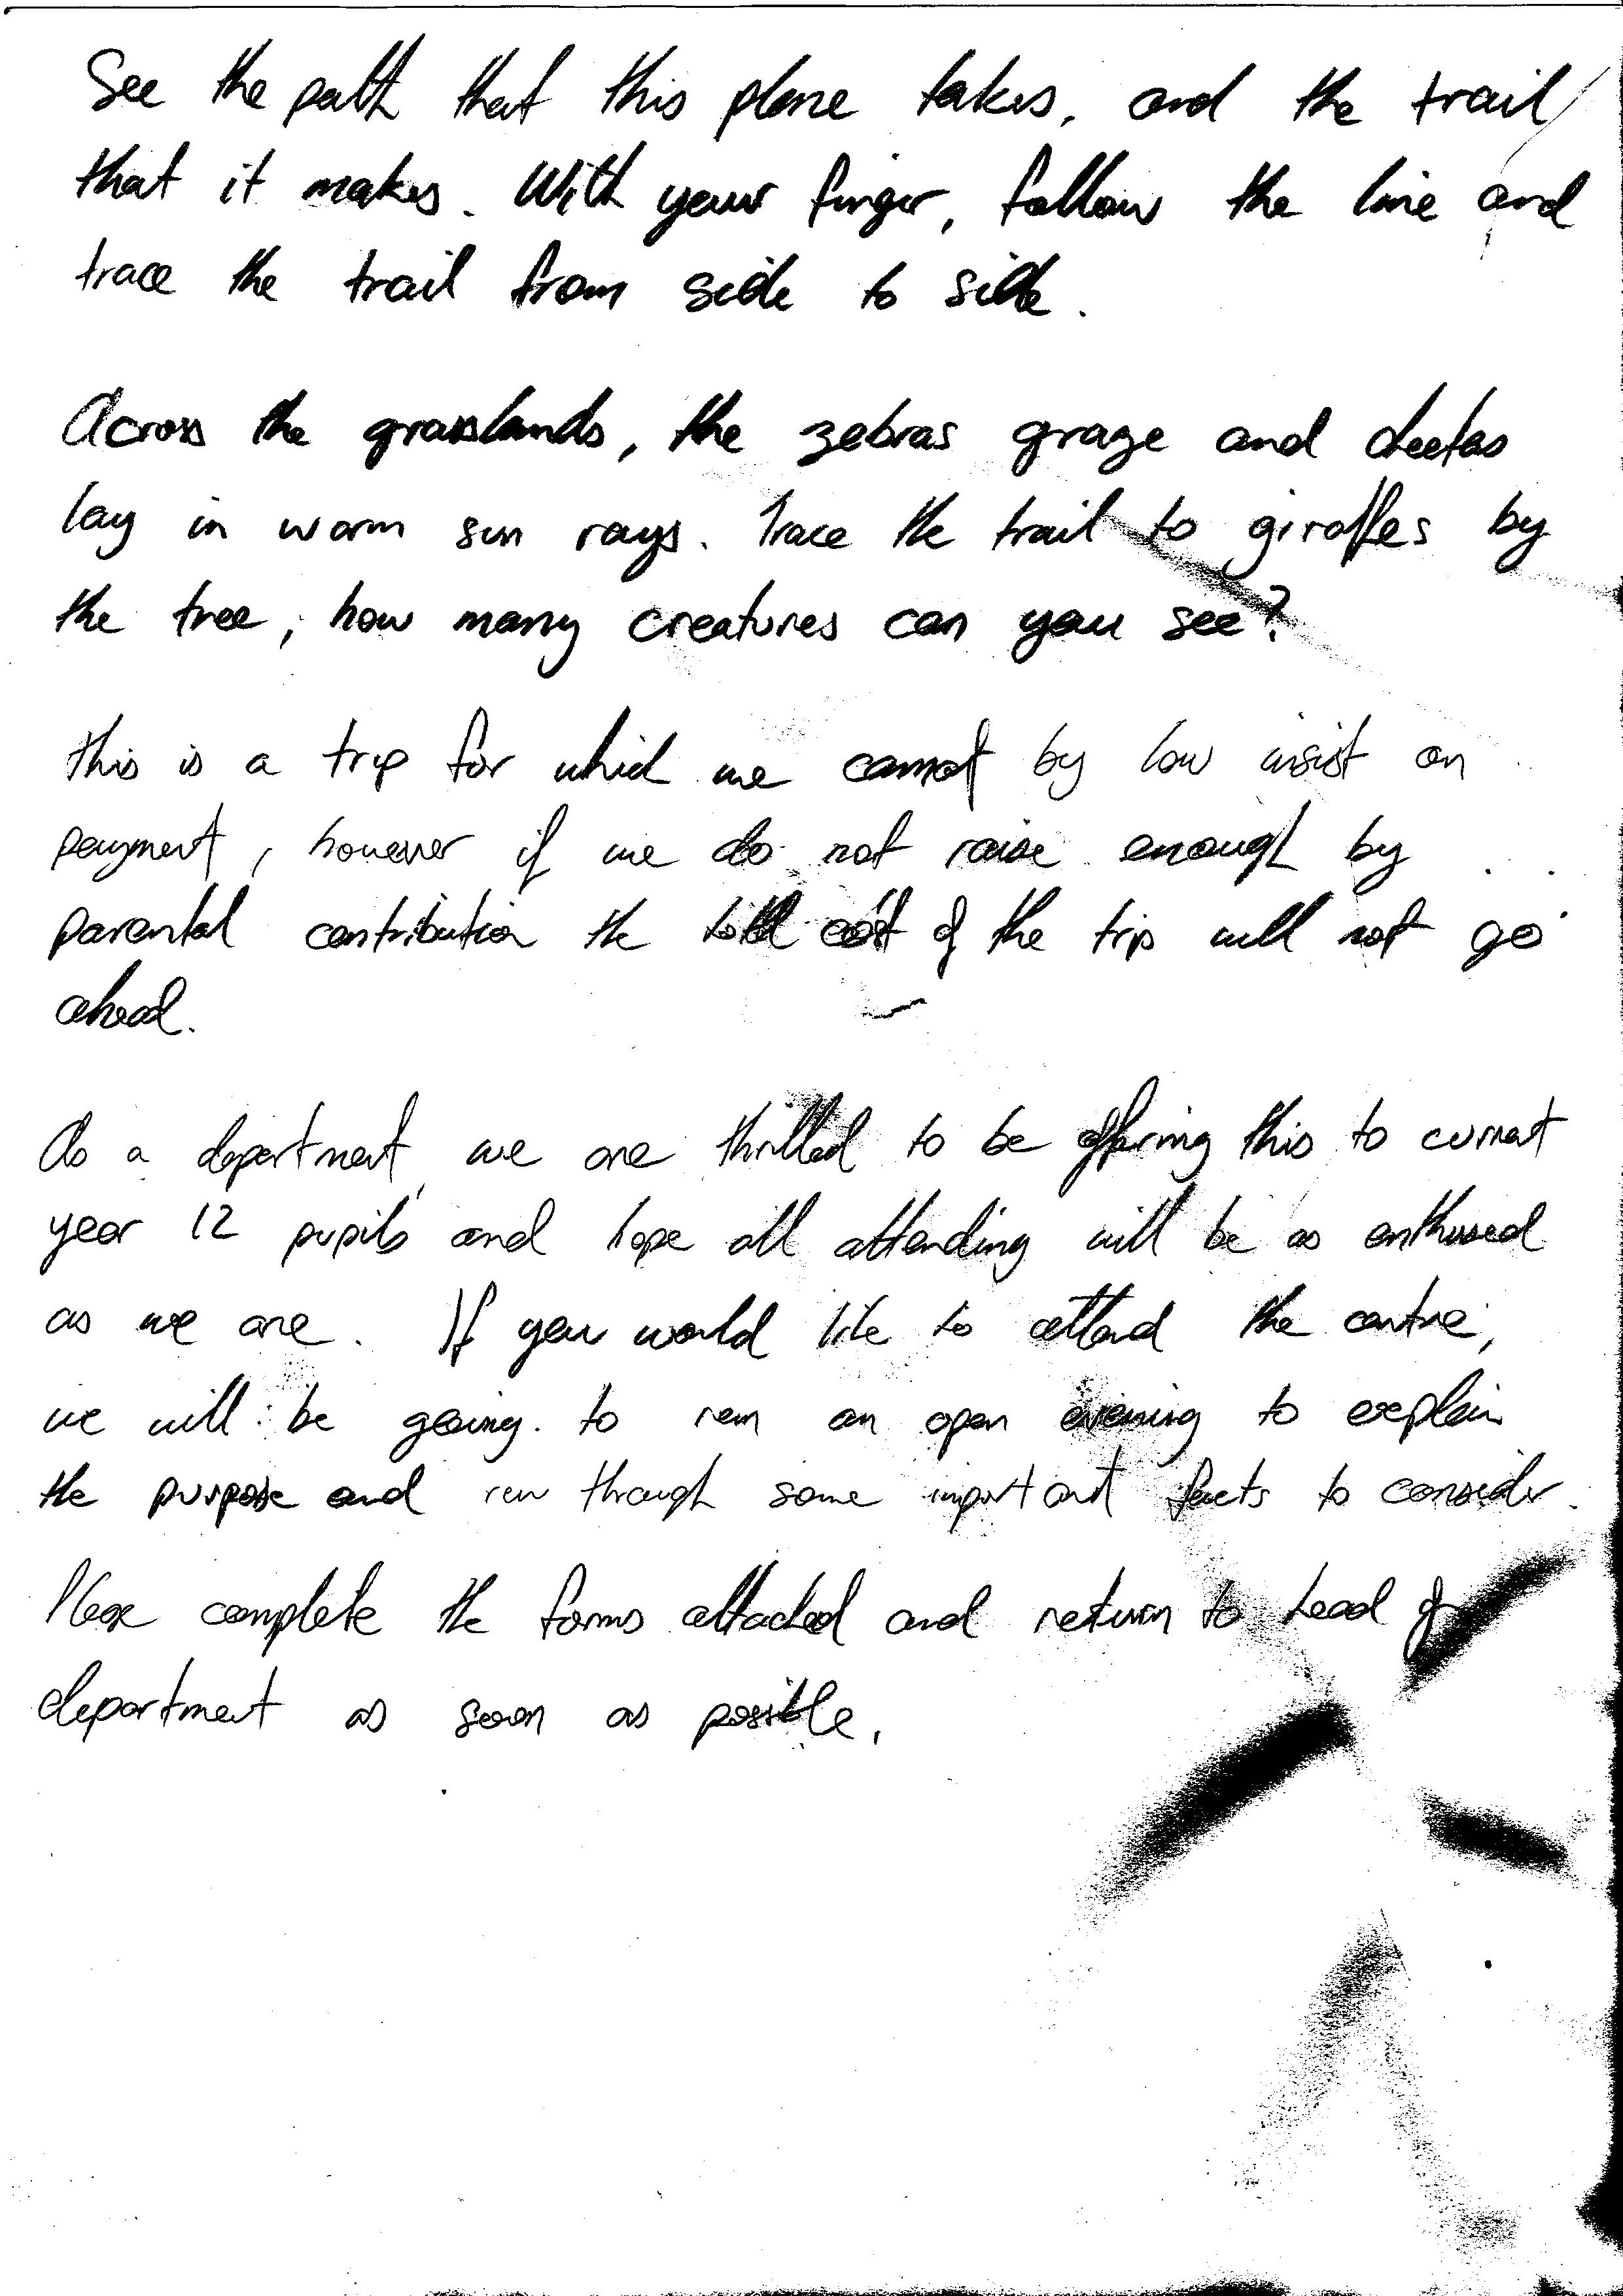 See the path that this plane takes, and the trail
that it makes. With your finger, follow the line and
trace the trail from side to side.
Across the grasslands, the zebras graze and cheetas
lay in warm sun rays. Trace the trail to giraffes by
the tree, how many creatures can you see?
this is a trip for which we cannot by law insist on
payment, however if we do not raise enough by
parental contribution the total cost of the trip will not go
ahead.
As a department, we are thrilled to be offering this to current
year 12 pupils and hope all attending will be as enthused
as we are. If you would like to attend the centre,
we will be going to run an open evening to explain
the purpose and run through some important facts to consider.
Please complete the forms attached and return to head of
department as soon as possible.